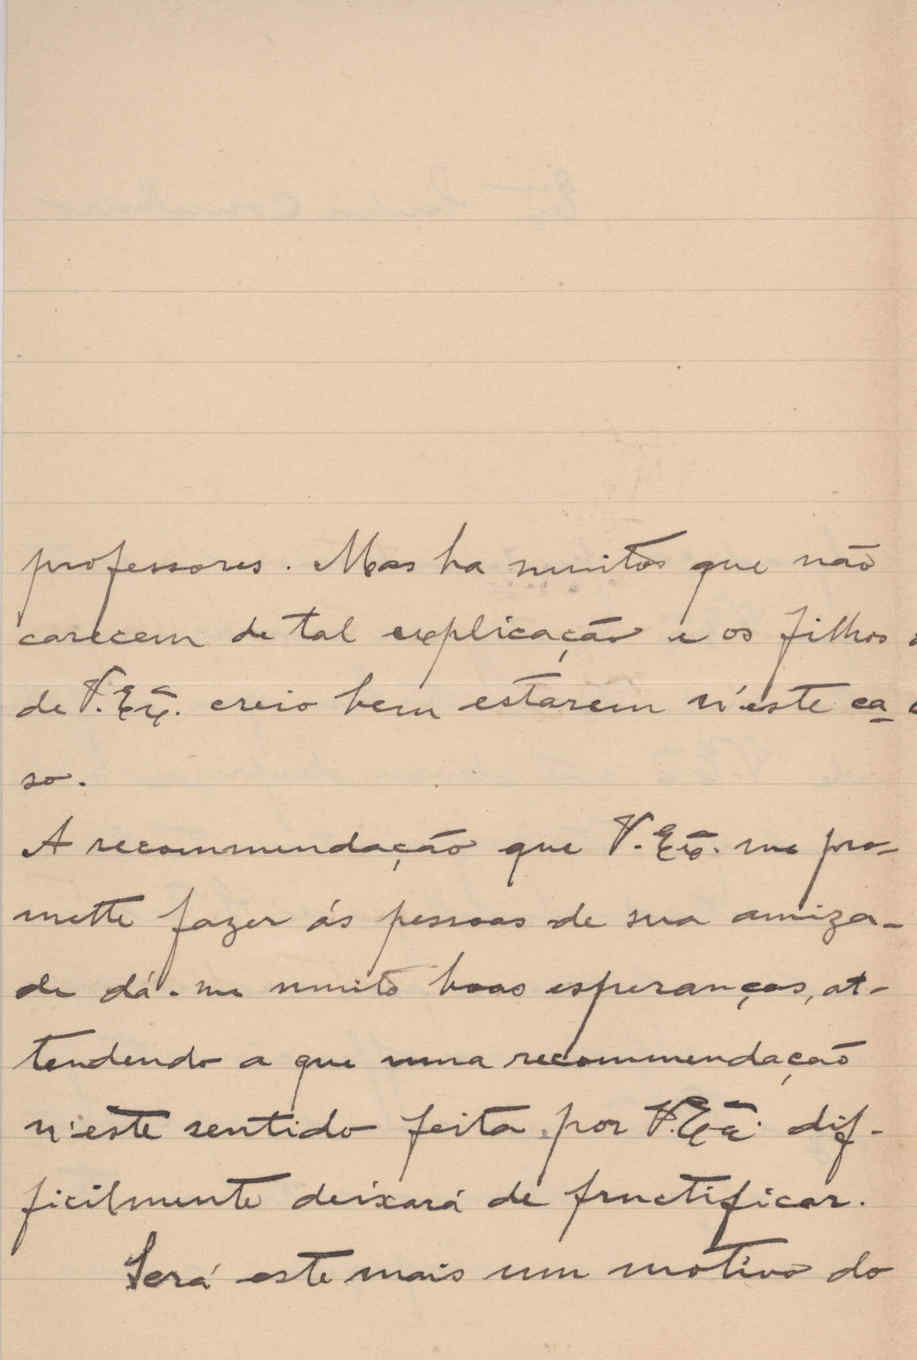 professores. Mas ha muitos que não
carecem de tal explicação e os filhos
de V. Exª. creio bem estarem n'este ca-
so.
A recommendação que V. Exª. me pro-
mette fazer ás pessoas de sua amiza-
de dá-me muito boas esperanças, at-
tendendo a que uma recommendação
n'este sentido feita por V. Exª. dif-
ficilmente deixará de fructificar.
Será este mais um motivo do